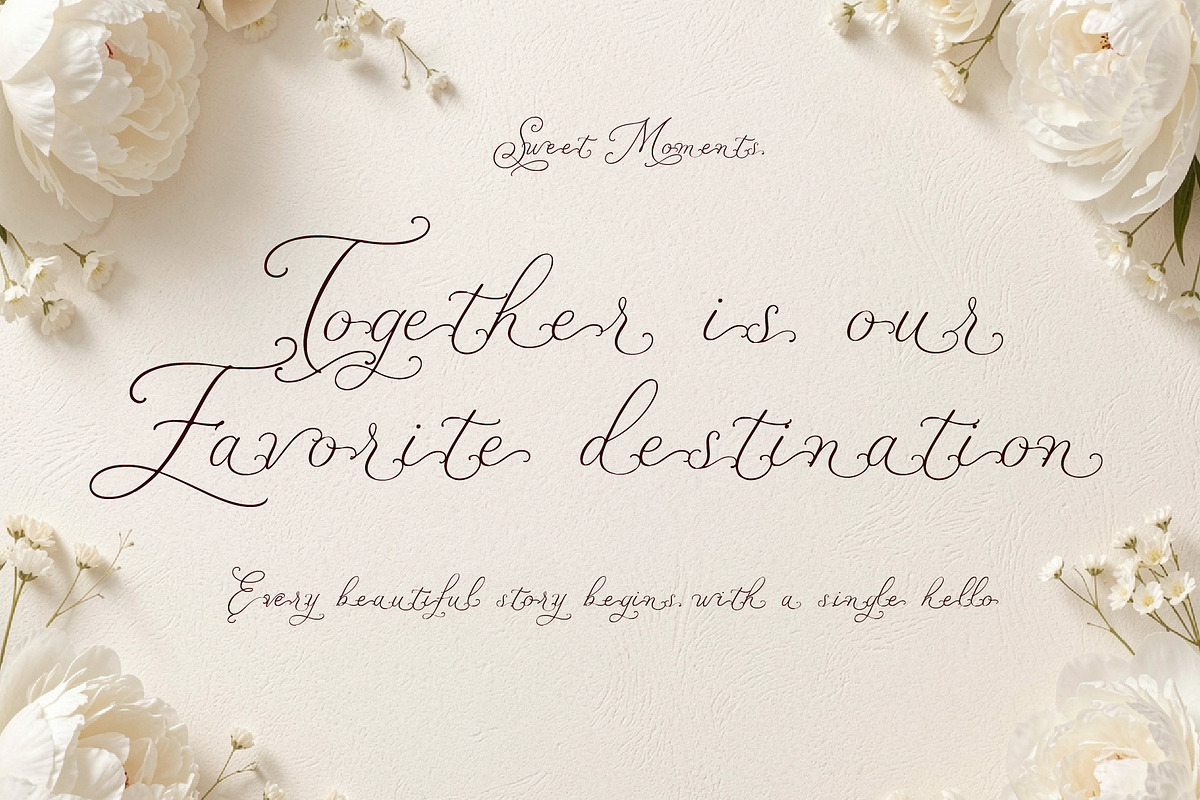 Sweet Moments.
Together is our
Favorite destination
Every beautiful story begins. with a single hello